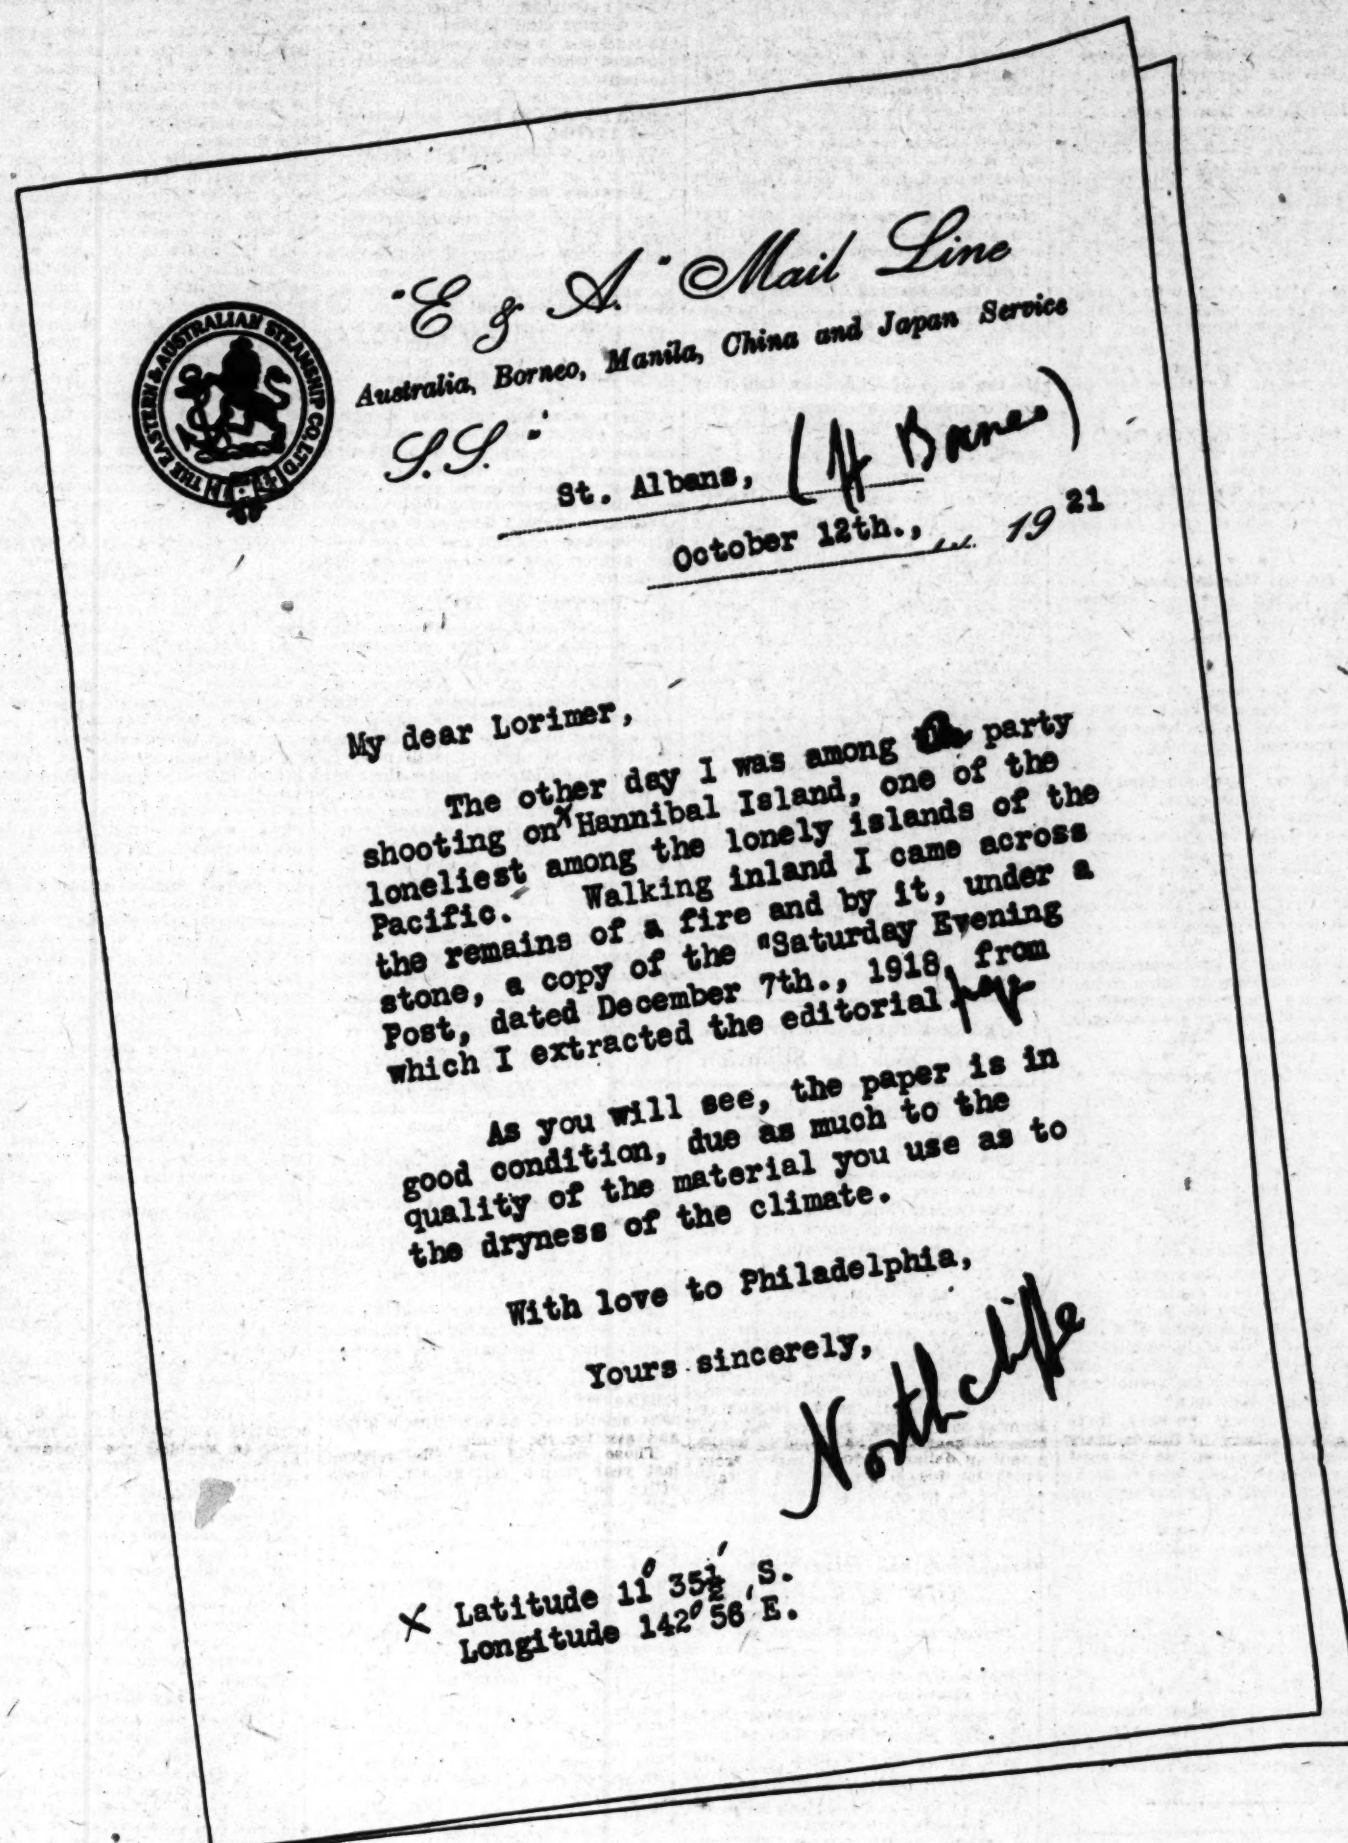 "E & A." Mail Line
Australia, Borneo, Manila, China and Japan Service
THE EASTERN & AUSTRALIAN STEAMSHIP CO. LTD
S.S. "
St. Albans, ( Borneo)
October 12th., 1921
My dear Lorimer,
The other day I was among party
shooting on x Hannibal Island, one of the
loneliest among the lonely islands of the
Pacific. Walking inland I came across
the remains of a fire and by it, under a
stone, a copy of the "Saturday Evening
Post, dated December 7th., 1918, from
which I extracted the editorial page
As you will see, the paper is in
good condition, due as much to the
quality of the material you use as to
the dryness of the climate.
With love to Philadelphia,
Yours sincerely,
Northcliffe
x Latitude 11° 35½' S.
Longitude 142° 56' E.